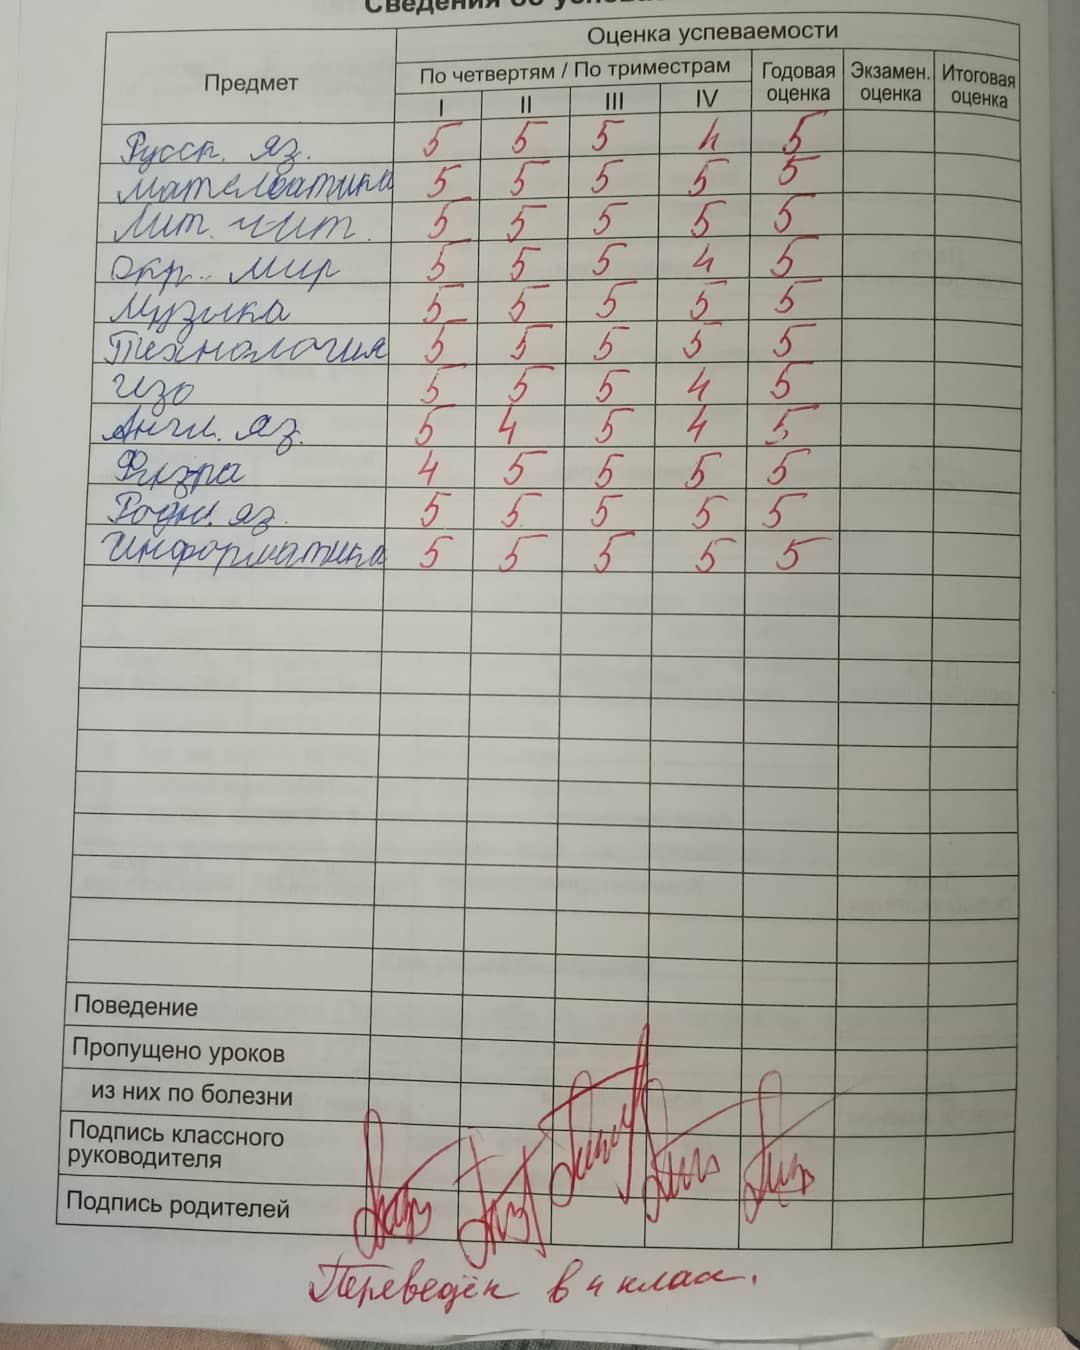 Сведения об успева
Предмет
Оценка успеваемости
По четвертям / По триместрам
Годовая оценка
Экзамен. оценка
Итоговая оценка
I II III IV
Русск. яз. 5 5 5 4 5
Математика 5 5 5 5 5
Лит. чит. 5 5 5 5 5
Окр. мир 5 5 5 4 5
Музыка 5 5 5 5 5
Технология 5 5 5 5 5
Изо 5 5 5 4 5
Англ. яз. 5 4 5 4 5
Физра 4 5 5 5 5
Родн. яз. 5 5 5 5 5
Информатика 5 5 5 5 5
Поведение
Пропущено уроков
из них по болезни
Подпись классного
руководителя
Подпись родителей
Переведён в 4 класс.